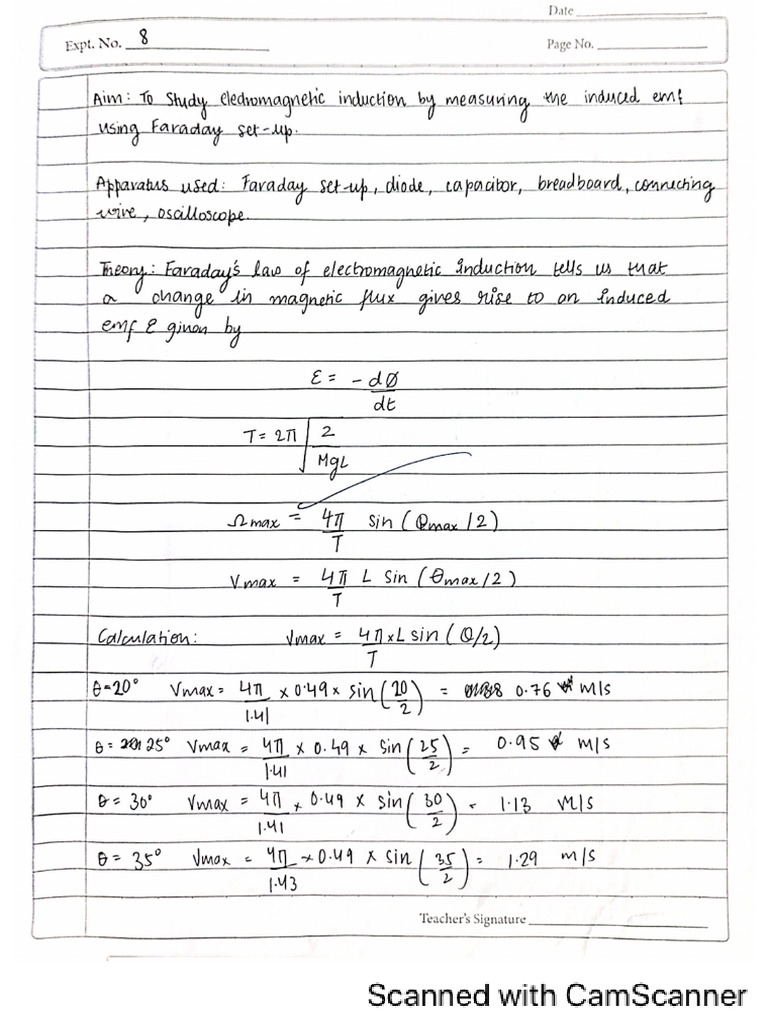 Date
Expt. No. 8
Page No.
Aim: To study electromagnetic induction by measuring the induced emf
using Faraday set-up.
Apparatus used: Faraday set-up, diode, capacitor, breadboard, connecting
wire, oscilloscope.
Theory: Faraday's law of electromagnetic induction tells us that
a change in magnetic flux gives rise to an induced
emf ε given by
ε = - dØ/dt
T = 2π √(2/MgL)
Ωmax = 4π/T sin (θmax/2)
Vmax = 4π/T L sin (θmax/2)
Calculation: Vmax = 4π/T × L sin (θ/2)
θ=20° Vmax = 4π/1.41 × 0.49 × sin(20/2) = 0.76 m/s
θ = 25° Vmax = 4π/1.41 × 0.49 × sin(25/2) = 0.95 m/s
θ = 30° Vmax = 4π/1.41 × 0.49 × sin(30/2) = 1.13 m/s
θ = 35° Vmax = 4π/1.43 × 0.49 × sin(35/2) = 1.29 m/s
Teacher's Signature
Scanned with CamScanner